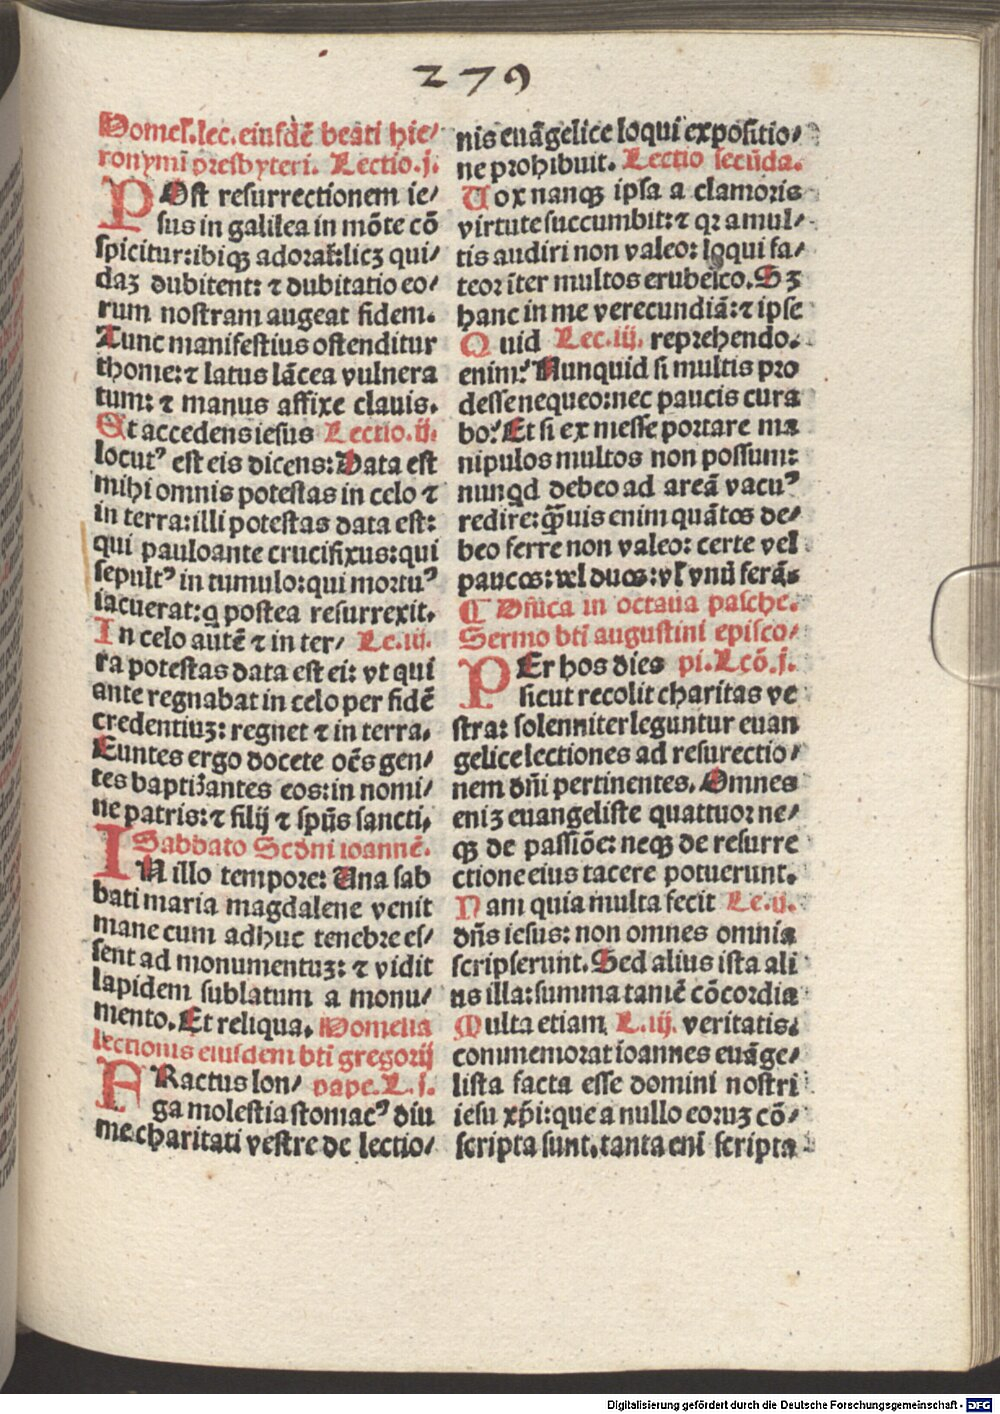 279
Homel'.lec.eiusdē beati hie/
ronymi presbyteri. Lectio.j.
POst resurrectionem ie/
sus in galilea in mōte cō
spicitur:ibiqꝫ adorat̉:licꝫ qui/
daꝫ dubitent: ⁊ dubitatio eo/
rum nostram augeat fidem.
Tunc manifestius ostenditur
thome:⁊ latus lācea vulnera
tum: ⁊ manus affixe clauis.
Et accedens iesus Lectio.ij.
locutꝰ est eis dicens: Data est
mihi omnis potestas in celo ⁊
in terra:illi potestas data est:
qui pauloante crucifixus:qui
sepultꝰ in tumulo:qui mortuꝰ
iacuerat:q postea resurrexit.
In celo autē ⁊ in ter/ Lc.iij.
ra potestas data est ei: vt qui
ante regnabat in celo per fidē
credentiuꝫ: regnet ⁊ in terra.
Euntes ergo docete oēs gen/
tes baptizantes eos:in nomi/
ne patris:⁊ filij ⁊ spūs sancti.
Sabbato Scdni ioannē.
IN illo tempore: Una sab
bati maria magdalene venit
mane cum adhuc tenebre es/
sent ad monumentuꝫ: ⁊ vidit
lapidem sublatum a monu/
mento. Et reliqua. Homelia
lectionis eiusdem bti gregorij
FRactus lon/ pape.L.j.
ga molestia stomacꝰ diu
me charitati vestre de lectio/
nis euāgelice loqui expositio/
ne prohibuit. Lectio secūda.
Uox nanqꝫ ipsa a clamoris
virtute succumbit:⁊ qꝛ a mul/
tis audiri non valeo: loqui fa/
teor īter multos erubesco. Sꝫ
hanc in me verecundiā:⁊ ipse
Quid Lec.iij. reprehendo.
enim? Nunquid si multis pro
desse nequeo:nec paucis cura
bo? Et si ex messe portare ma
nipulos multos non possum:
nunqd debeo ad areā vacuꝰ
redire:q̄uis enim quātos de/
beo ferre non valeo: certe vel
paucos:vel duos:vl' vnū ferā.
¶ Dn̄ica in octaua pasche.
Sermo bti augustini episco/
PEr hos dies pi.Lcō.j.
sicut recolit charitas ve
stra: solenniter leguntur euan
gelice lectiones ad resurectio/
nem dn̄i pertinentes. Omnes
eniꝫ euangeliste quattuor ne/
qꝫ de passiōe: neqꝫ de resurre
ctione eius tacere potuerunt.
Nam quia multa fecit Le.ij.
dn̄s iesus: non omnes omnia
scripserunt. Sed alius ista ali
us illa:summa tamē cōcordia
Multa etiam L.iij. veritatis.
commemorat ioannes euāge/
lista facta esse domini nostri
iesu xp̄i:que a nullo eoruꝫ cō/
scripta sunt.tanta eni scripta
Digitalisierung gefördert durch die Deutsche Forschungsgemeinschaft - DFG